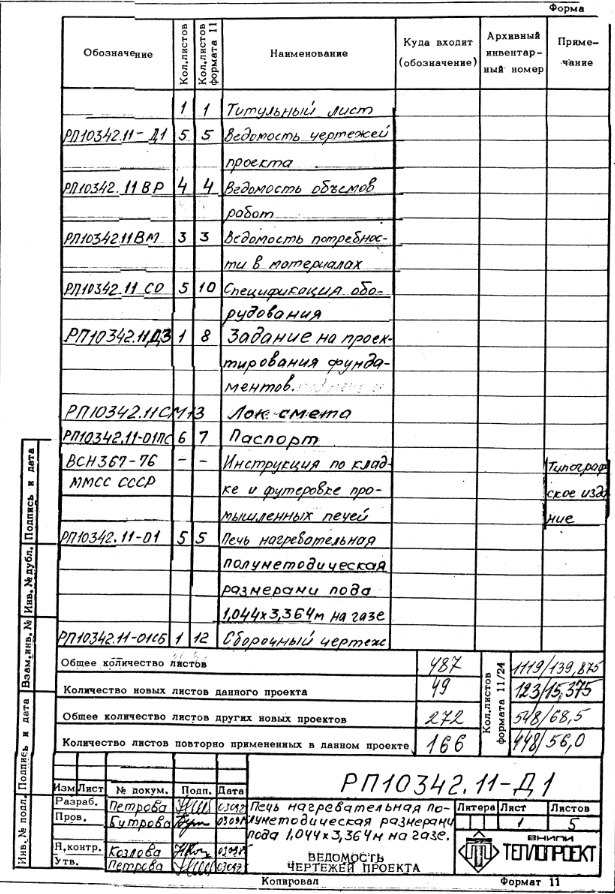 Форма
Обозначение Кол.листов Кол.листов формата 11 Наименование Куда входит (обозначение) Архивный инвентар- ный номер Приме- чание
1 1 Титульный лист
РП10342.11-Д1 5 5 Ведомость чертежей
проекта
РП10342.11ВР 4 4 Ведомость объемов
работ
РП10342.11ВМ 3 3 Ведомость потребнос-
ти в материалах
РП10342.11 СО 5 10 Спецификация обо-
рудования
РП10342.11ДЗ 1 8 Задание на проек-
тирования фунда-
ментов.
РП10342.11СМ 13 Лок. смета
РП10342.11-01ПС 6 7 Паспорт
ВСН367-76 - - Инструкция по клад- Типограф-
ММСС СССР ке и футеровке про- ское изда
мышленных печей ние
РП10342.11-01 5 5 Печь нагревательная
полуметодическая
размерами пода
1,044х3,364м на газе
РП10342.11-01СБ 1 12 Сборочный чертеж
Общее количество листов 487 Кол.листов формата 11/24 1119/139,875
Количество новых листов данного проекта 49 123/15,375
Общее количество листов других новых проектов 272 548/68,5
Количество листов повторно примененных в данном проекте 166 448/56,0
РП10342.11-Д1
Изм Лист № докум. Подп. Дата
Разраб. Петрова Печь нагревательная по- Литера Лист Листов
Пров. Бутрова луметодическая размерами 1 5
пода 1,044х3,364м на газе.
Н.контр. Козлова ВЕДОМОСТЬ ВНИПИ
Утв. Петрова ЧЕРТЕЖЕЙ ПРОЕКТА ТЕПЛОПРОЕКТ
Копировал Формат 11
Инв.№ подл. Подпись и дата Взам.инв.№ Инв.№ дубл. Подпись и дата